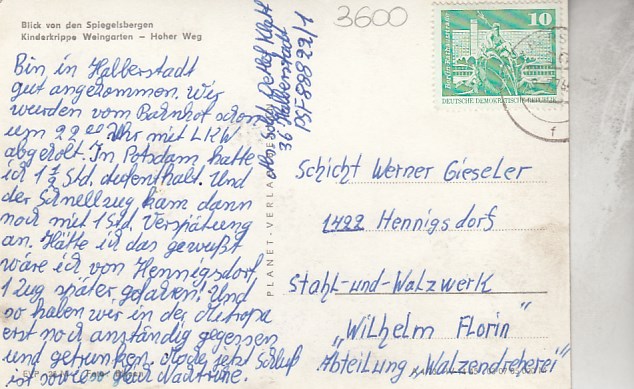 Blick von den Spiegelsbergen
Kinderkrippe Weingarten – Hoher Weg
Bin in Halberstadt
gut angekommen. Wir
wurden vom Bahnhof schon
um 22⁰⁰ Uhr mit LKW
abgeholt. In Potsdam hatte
ich 1½ Std. Aufenthalt. Und
der Schnellzug kam dann
noch mit 1 Std. Verspätung
an. Hätte ich das gewußt
wäre ich von Hennigsdorf
1 Zug später gefahren! Und
so haben wir in der Mitropa
erst noch anständig gegessen
und getrunken. Mach jetzt Schluß
ist sowieso
36 Halberstadt
PSF 88822/1
PLANET-VERLAG
3600
10
DEUTSCHE DEMOKRATISCHE REPUBLIK
Schicht Werner Gieseler
1422 Hennigsdorf
Stahl-und-Walzwerk
„Wilhelm Florin"
Abteilung „Walzendreherei"